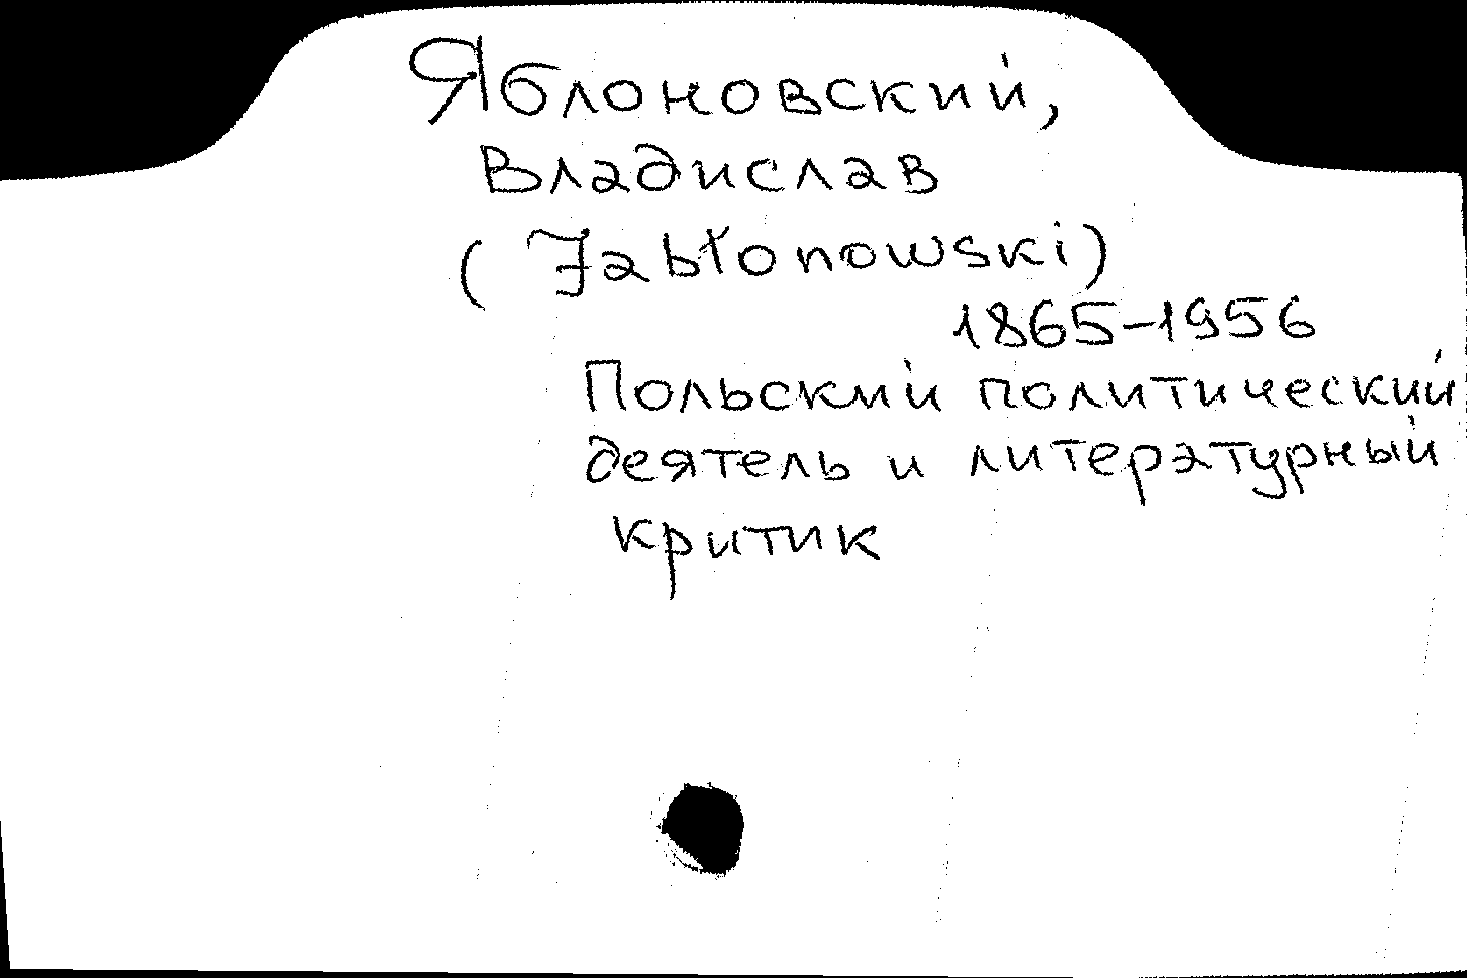 Яблоновский,
Владислав
(Jabłonowski)
1865-1956
Польский политический
деятель и литературный
критик